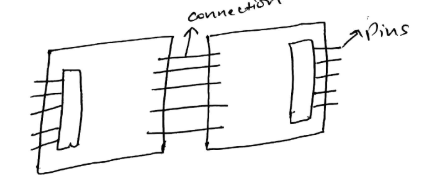 connection
Pins